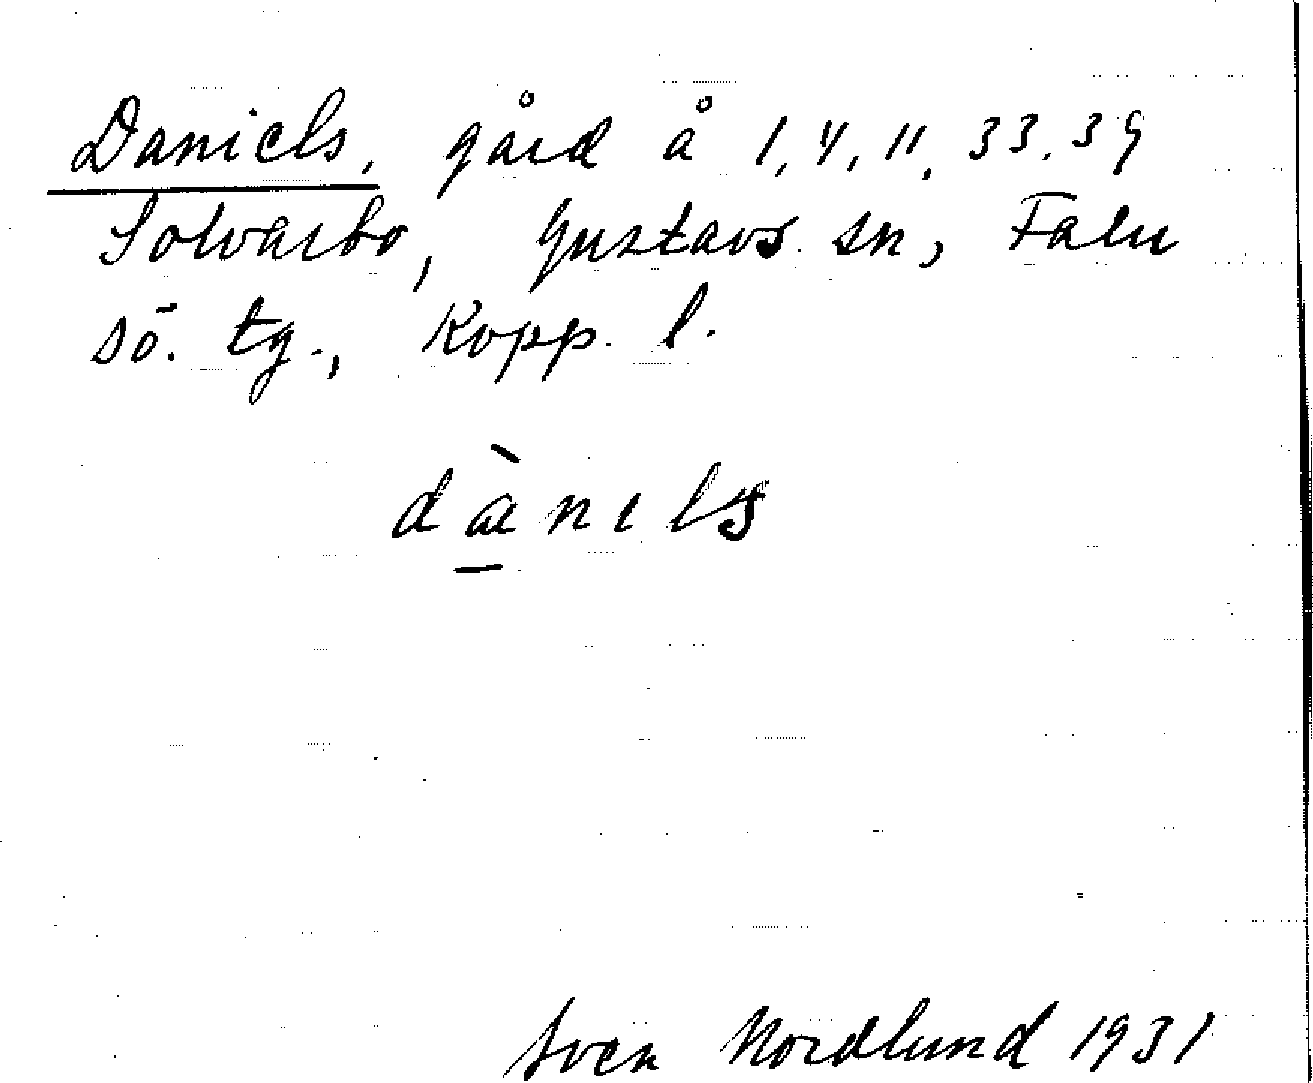 Daniels, gård å 1, 4, 11, 33, 39
Solvarbo, Gustavs sn, Falu
sö. tg., Kopp. l.
dànɩls
Sven Nordlund 1931